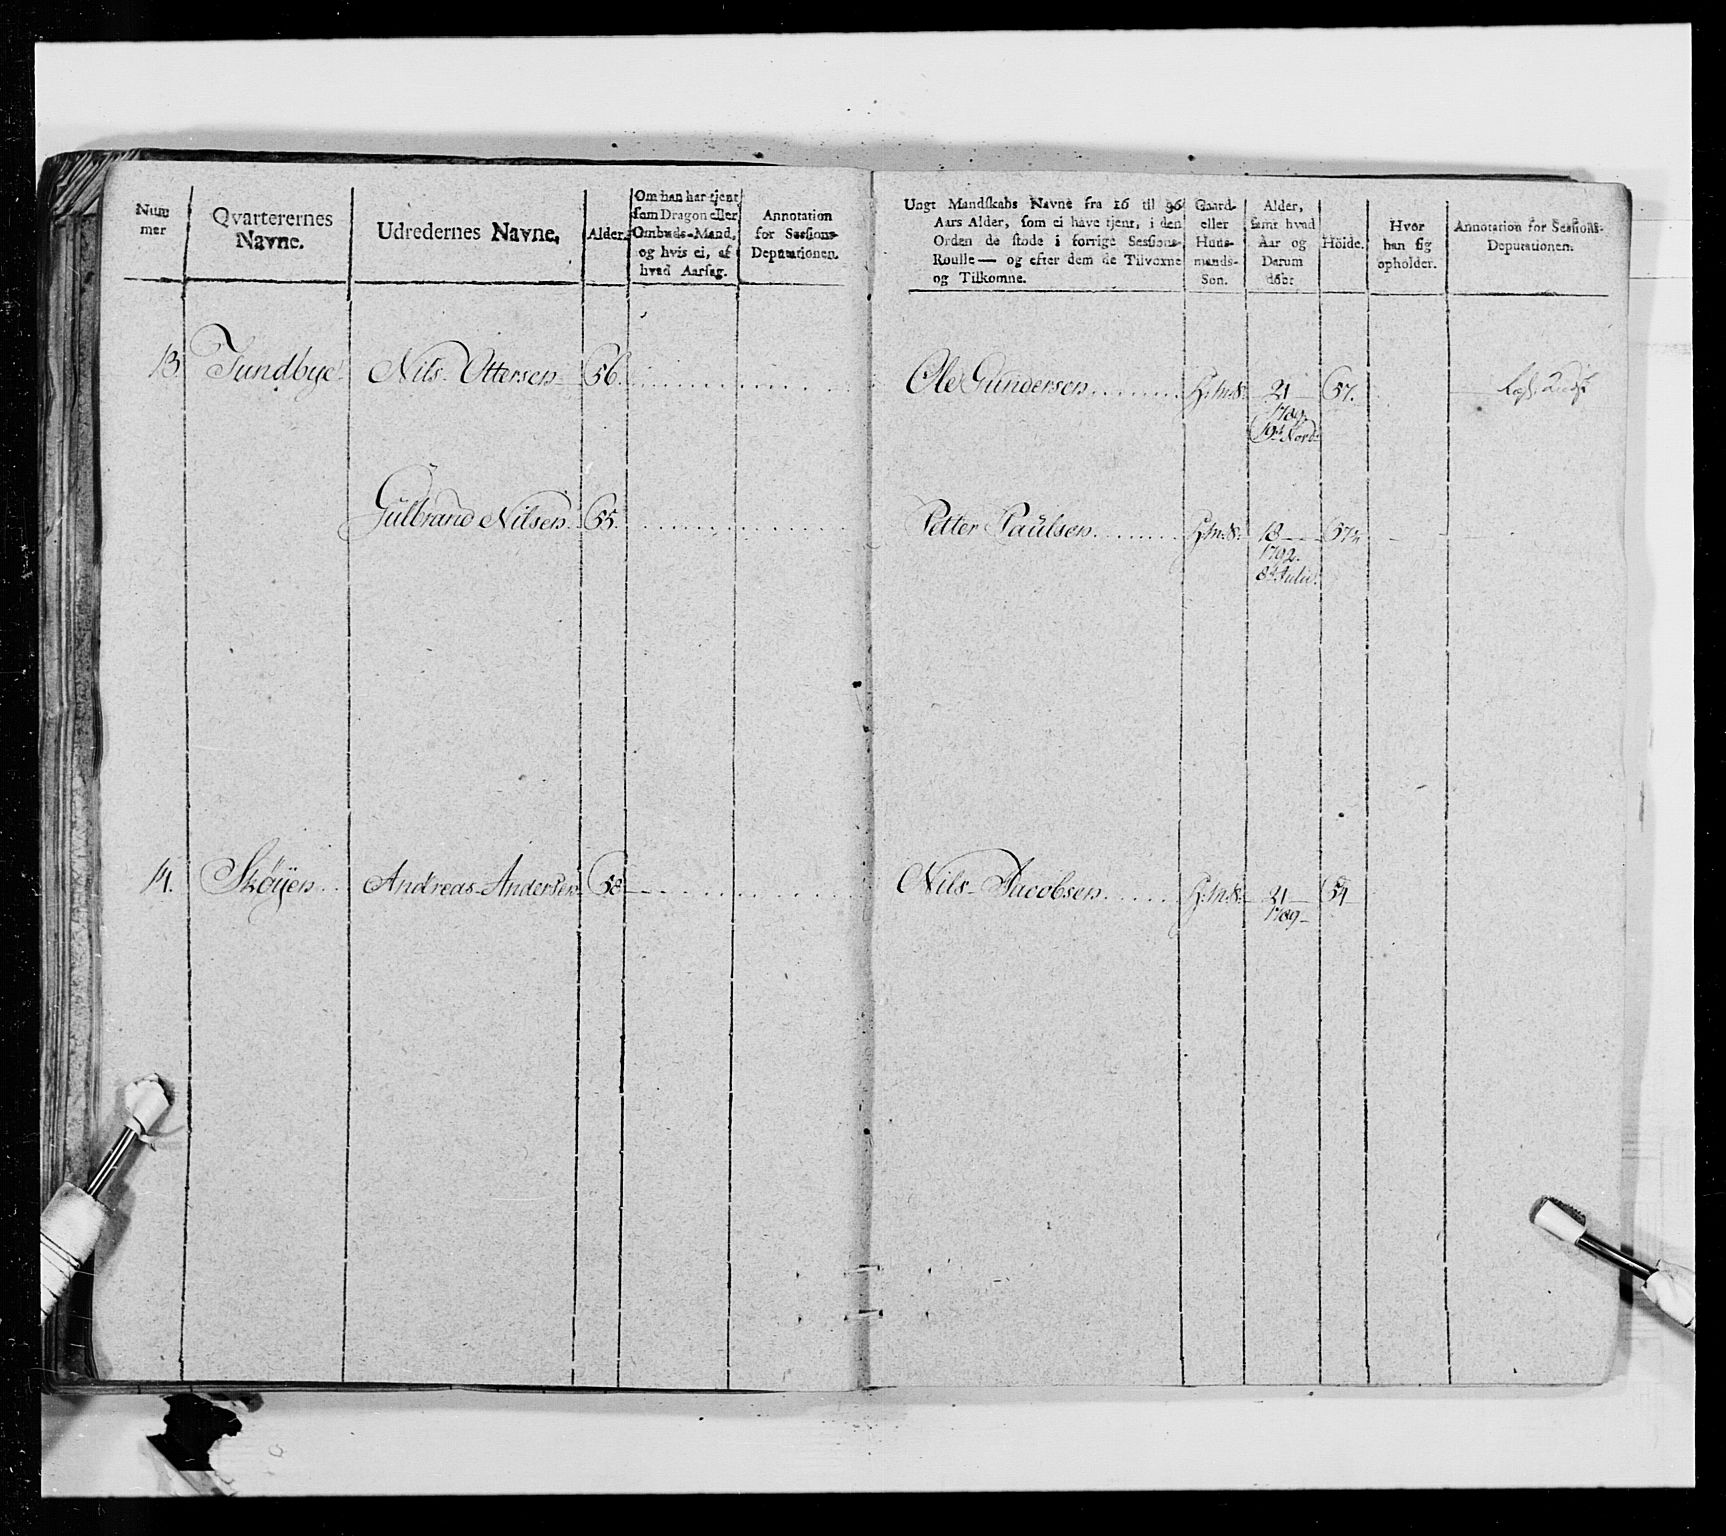 Num
mer
Qvarterernes
Navne.
Udredernes Navne.
Alder.
Om han har tjent
som Dragon eller
Ombuds-Mand,
og hvis ei, af
hvad Aarsag.
Annotation
for Sessions-
Deputationen.
Ungt Mandskabs Navne fra 16 til 36
Aars Alder, som ei have tjent, i den
Orden de stode i forrige Sessions-
Roulle — og efter dem de Tilvoxne
og Tilkomne.
Gaard-
eller
Huus-
mands-
Søn.
Alder,
samt hvad
Aar og
Datum
døbt
Höide.
Hvor
han sig
opholder.
Annotation for Sessions-
Deputationen.
13. Tundbye Nils Ottersen 56. Ole Gundersen H:m:S: 21 57.
1789
19de Novb.
Gülbrand Nilsen 55. Petter Paülsen H:m:S: 18 57½
1792.
8de Julii.
14. Skøÿen Andreas Andersen 58 Nils Jacobsen H:m:S: 21 54
1789